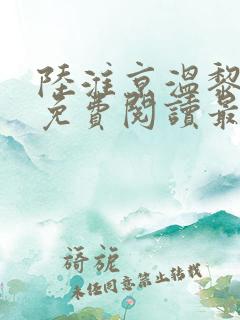 陸淮京溫黎
免費閱讀最
旖旎
未经同意禁止转载